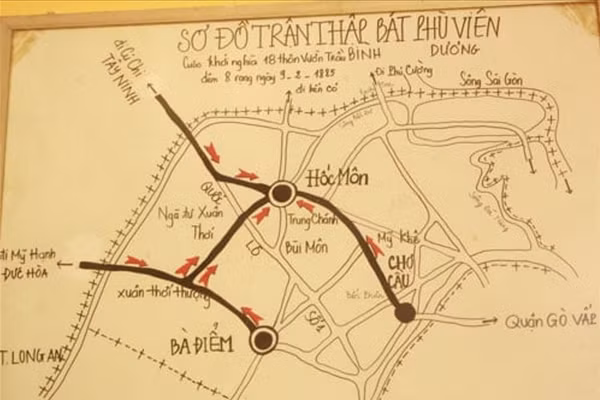 SƠ ĐỒ TRẬN THẬP BÁT PHÙ VIÊN
Cuộc khởi nghĩa 18 thôn Vườn Trầu BÌNH DƯƠNG
đêm 8 rạng ngày 9-2-1885
đi Củ Chi
TÂY NINH
đi bến cỏ
Đi Phú Cường
Sông Sài Gòn
HỐC MÔN
QUỐC
LỘ
SỐ 1
Ngã tư Xuân
Thới
Trung Chánh
Bùi Môn
Mỹ Khê
CHỢ
CẦU
đi Mỹ Hạnh
ĐỨC HÒA
xuân thới thượng
BÀ ĐIỂM
Quận GÒ VẤP
T. LONG AN